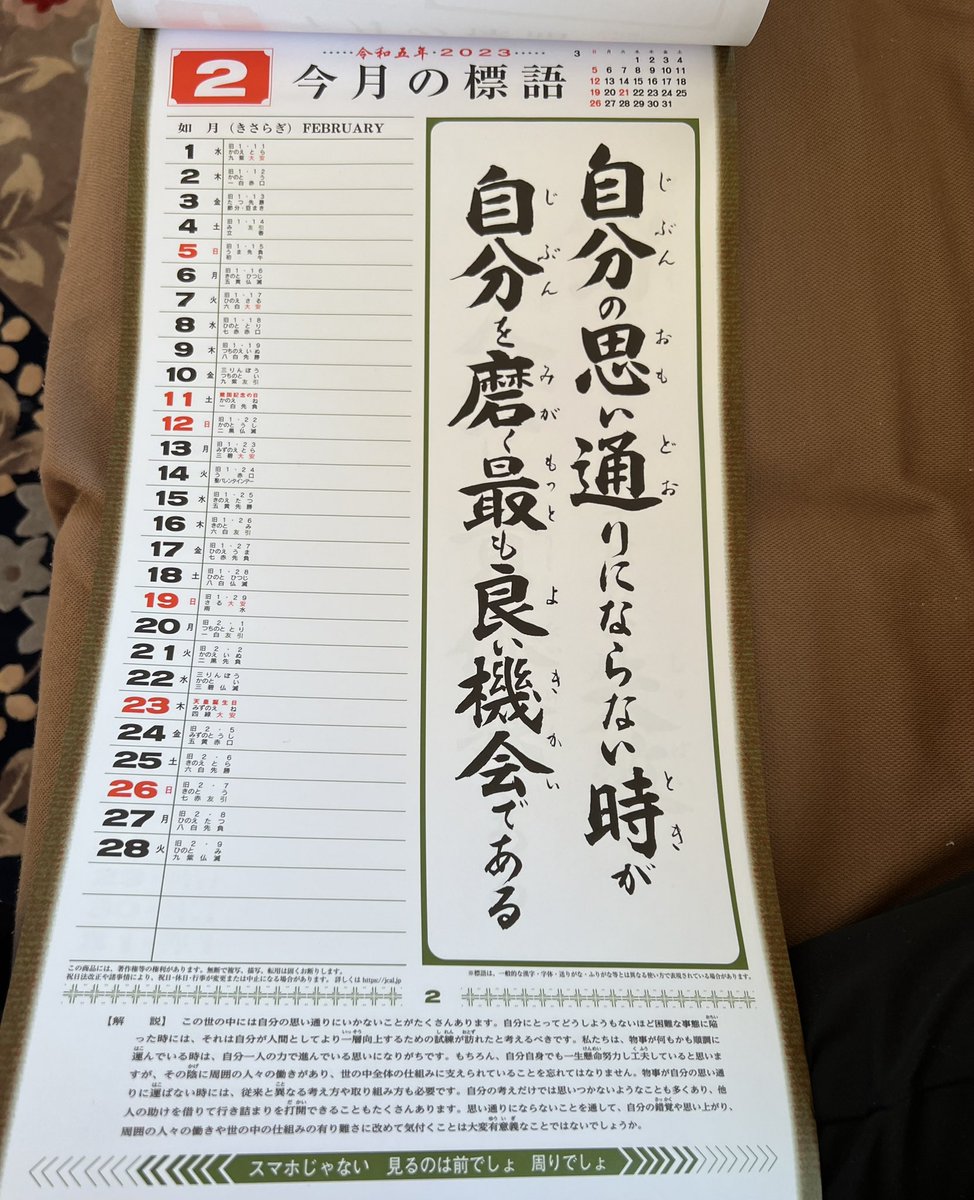 令和五年・2023
2
今月の標語
3
日 月 火 水 木 金 土
1 2 3 4
5 6 7 8 9 10 11
12 13 14 15 16 17 18
19 20 21 22 23 24 25
26 27 28 29 30 31
如 月 (きさらぎ) FEBRUARY
1 水 旧1・11
かのえとら
九紫大安
2 木 旧1・12
かのとう
一白赤口
3 金 旧1・13
たつ先勝
節分・豆まき
4 土 旧1・14
み友引
立春
5 日 旧1・15
うま先負
初午
6 月 旧1・16
きのとひつじ
五黄仏滅
7 火 旧1・17
ひのえさる
六白大安
8 水 旧1・18
ひのととり
七赤赤口
9 木 旧1・19
つちのえいぬ
八白先勝
10 金 三りんぼう
つちのとい
九紫友引
11 土 建国記念の日
かのえね
一白先負
12 日 旧1・22
かのとうし
二黒仏滅
13 月 旧1・23
みずのえとら
三碧大安
14 火 旧1・24
う赤口
聖バレンタインデー
15 水 旧1・25
きのえたつ
五黄先勝
16 木 旧1・26
きのとみ
六白友引
17 金 旧1・27
ひのえうま
七赤先負
18 土 旧1・28
ひのとひつじ
八白仏滅
19 日 旧1・29
さる大安
雨水
20 月 旧2・1
つちのととり
一白友引
21 火 旧2・2
かのえいぬ
二黒先負
22 水 三りんぼう
かのとい
三碧仏滅
23 木 天皇誕生日
みずのえね
四緑大安
24 金 旧2・5
みずのとうし
五黄赤口
25 土 旧2・6
きのえとら
六白先勝
26 日 旧2・7
きのとう
七赤友引
27 月 旧2・8
ひのえたつ
八白先負
28 火 旧2・9
ひのとみ
九紫仏滅
自分の思い通りにならない時が
じぶん おも どお とき
自分を磨く最も良い機会である
じぶん みが もっと よ きかい
この商品には、著作権等の権利があります。無断で複写、描写、転用は固くお断りします。
祝日法改正や諸事情により、祝日・休日・行事が変更または中止になる場合があります。 詳しくは https://jcal.jp
※標語は、一般的な漢字・字体・送りがな・ふりがな等とは異なる使い方で表現されている場合があります。
2
【解 説】 この世の中には自分の思い通りにいかないことがたくさんあります。自分にとってどうしようもないほど困難な事態に陥
った時には、それは自分が人間としてより一層向上するための試練が訪れたと考えるべきです。私たちは、物事が何もかも順調に
運んでいる時は、自分一人の力で進んでいる思いになりがちです。もちろん、自分自身でも一生懸命努力し工夫していると思いま
すが、その陰に周囲の人々の働きがあり、世の中全体の仕組みに支えられていることを忘れてはなりません。物事が自分の思い通
りに運ばない時には、従来と異なる考え方や取り組み方も必要です。自分の考えだけでは思いつかないようなことも多くあり、他
人の助けを借りて行き詰まりを打開できることもたくさんあります。思い通りにならないことを通して、自分の錯覚や思い上がり、
周囲の人々の働きや世の中の仕組みの有り難さに改めて気付くことは大変有意義なことではないでしょうか。
スマホじゃない 見るのは前でしょ 周りでしょ